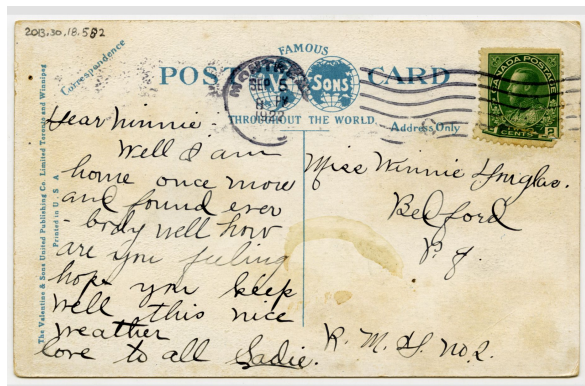 2013.30.18.582
Correspondence
FAMOUS
POST CARD
SONS
THROUGHOUT THE WORLD
Address Only
CANADA POSTAGE
2 CENTS 2
MONTREAL
5
PM
The Valentine & Sons United Publishing Co. Limited Toronto and Winnipeg
Printed in U S A
Dear Winnie:
Well I am
home once more
and found ever
body well how
are you feeling
hope you keep
well this nice
weather
love to all Sadie.
Miss Winnie Douglas.
Bedford
P. Q.
R. M. D. No. 2.